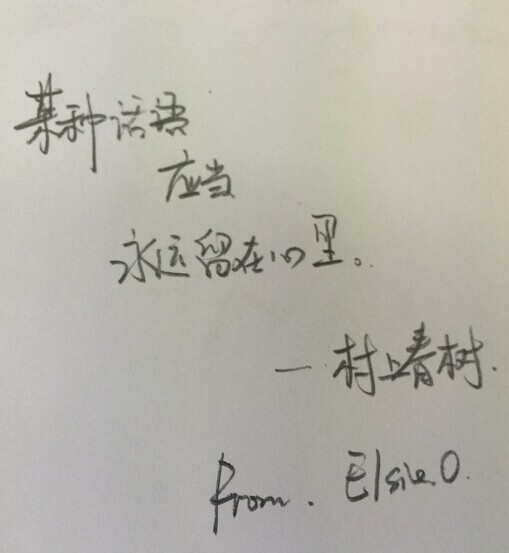 某种话语
应当
永远留在心里。
— 村上春树.
from. Elsie.O.